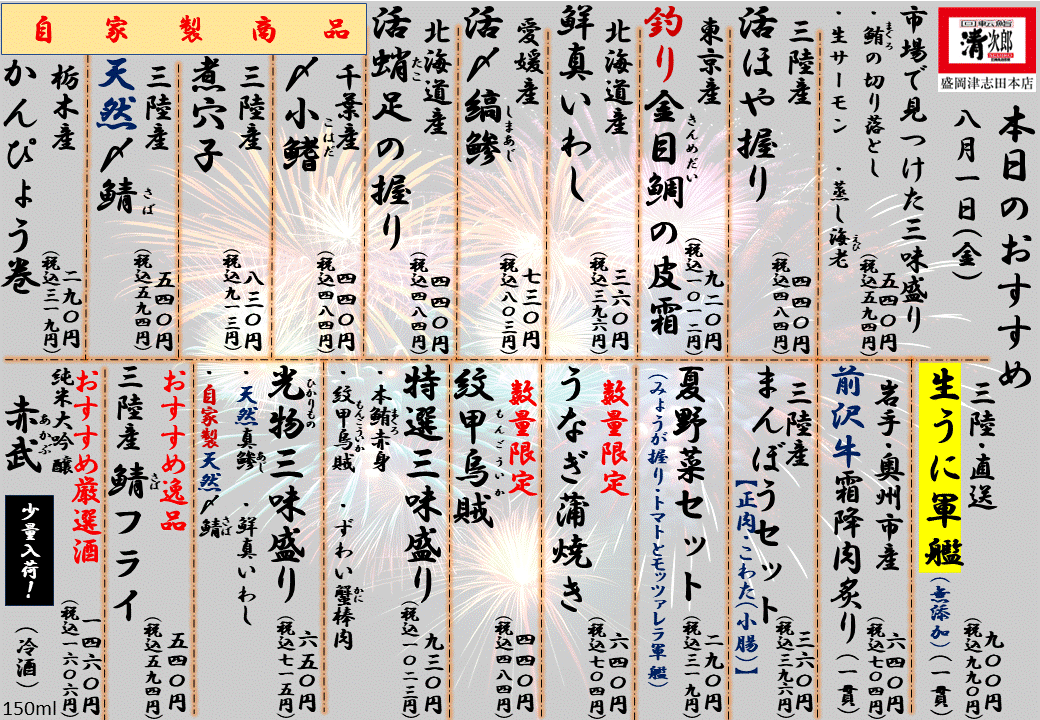 回転鮨
清次郎
盛岡津志田本店
本日のおすすめ
八月一日(金)
市場で見つけた三味盛り
・鮪の切り落とし
まぐろ
・生サーモン ・蒸し海老
えび
五四〇円
(税込五九四円)
三陸産
活ほや握り
四四〇円
(税込四八四円)
東京産
釣り金目鯛の皮霜
きんめだい
九二〇円
(税込一〇一二円)
北海道産
鮮真いわし
三六〇円
(税込三九六円)
愛媛産
活〆縞鯵
しまあじ
七三〇円
(税込八〇三円)
北海道産
活蛸足の握り
たこ
四四〇円
(税込四八四円)
自家製商品
千葉産
〆小鰭
こはだ
四四〇円
(税込四八四円)
三陸産
煮穴子
八三〇円
(税込九一三円)
三陸産
天然〆鯖
さば
五四〇円
(税込五九四円)
栃木産
かんぴょう巻
二九〇円
(税込三一九円)
三陸・直送
生うに軍艦
(無添加)(一貫)
九〇〇円
(税込九九〇円)
岩手・奥州市産
前沢牛霜降肉炙り(一貫)
六四〇円
(税込七〇四円)
三陸産
まんぼうセット
【正肉・こわた(小腸)】
三六〇円
(税込三九六円)
夏野菜セット
(みょうが握り・トマトとモッツァレラ軍艦)
二九〇円
(税込三一九円)
数量限定
うなぎ蒲焼き
六四〇円
(税込七〇四円)
数量限定
紋甲烏賊
もんごういか
四四〇円
(税込四八四円)
特選三味盛り
・本鮪赤身
まぐろ
・紋甲烏賊 ・ずわい蟹棒肉
もんごういか
かに
九三〇円
(税込一〇二三円)
光物三味盛り
ひかりもの
・天然真鯵 ・鮮真いわし
あじ
・自家製天然〆鯖
さば
六五〇円
(税込七一五円)
おすすめ逸品
三陸産 鯖フライ
さば
五四〇円
(税込五九四円)
おすすめ厳選酒
純米大吟醸
赤武
あかぶ
少量入荷!
(冷酒)
一四六〇円
(税込一六〇六円)
150ml